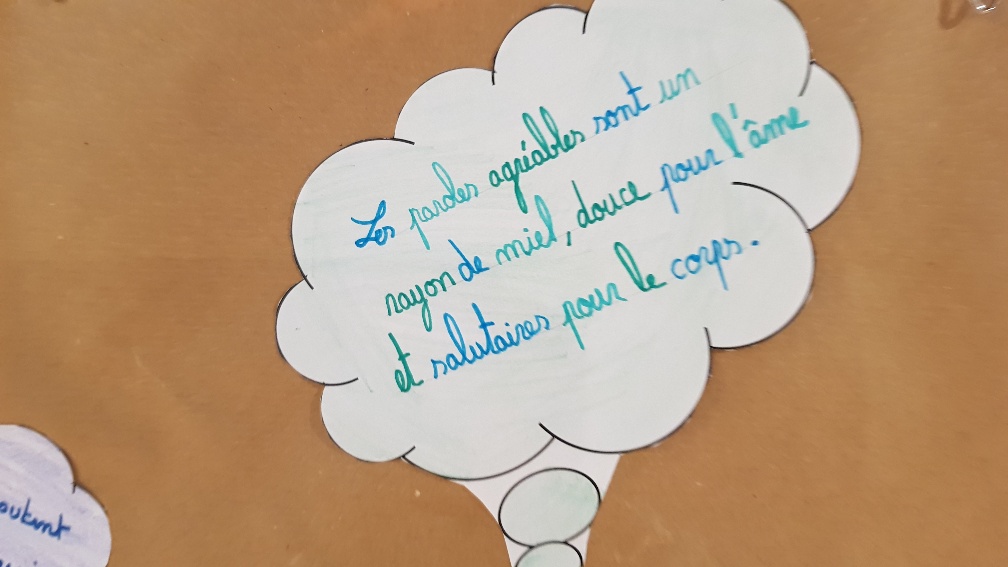 Les paroles agréables sont un
rayon de miel, douce pour l'âme
et salutaires pour le corps.